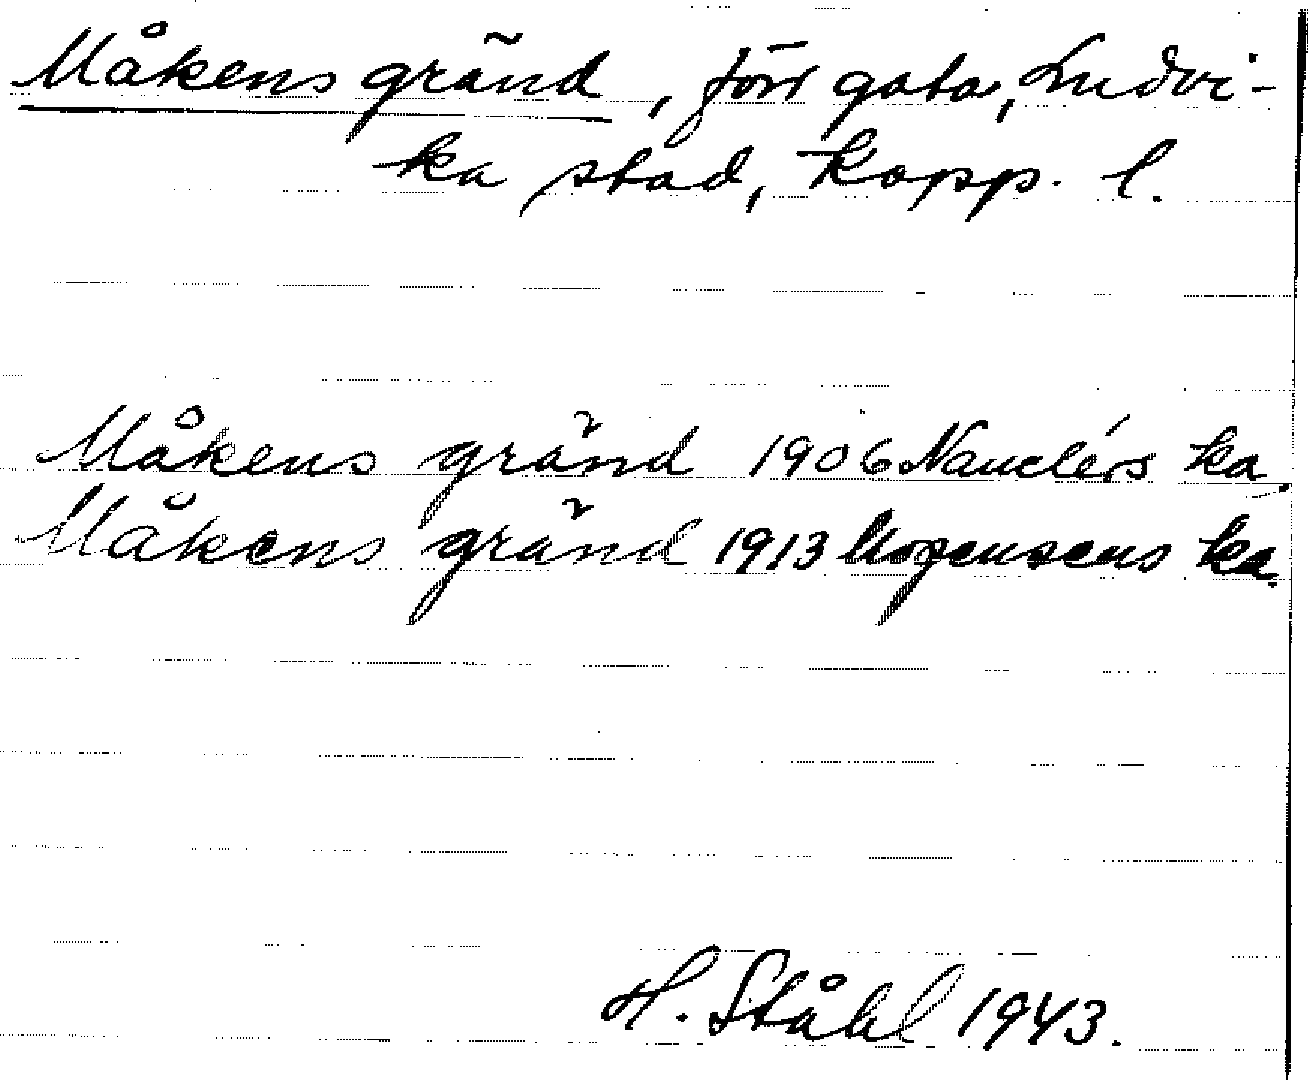 Måkens gränd, förr gata, Ludvi-
ka stad, Kopp. l.
Måkens gränd 1906 Nauclérs ka.
Måkens gränd 1913 Mogensens ka.
H. Ståhl 1943.